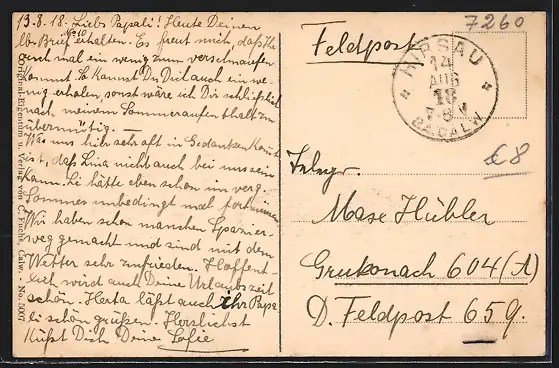 13.8.18. Liebs Papali! Heute Deinen
lb. Brief No 10 erhalten. Es freut mich, daß Ihr
auch mal ein wenig zum verschnaufen
kommt. So kannst Du Dich auch ein we-
nig erholen, sonst wäre ich Dir schließlich
nach meinem Sommeraufenthalt zu
übermütig.
Was uns hier sehr oft in Gedanken kommt
ist, daß Lina nicht auch bei uns sein
kann. Sie hätte eben schon im verg.
Sommer unbedingt mal fort müssen
Wir haben schon manchen Spazier-
weg gemacht und sind mit dem
Wetter sehr zufrieden. Hoffent-
lich wird auch Deine Urlaubszeit
schön. Herta läßt auch Ihr Papa-
li schön grüßen. Herzlichst
Küßt Dich Deine Sofie
Original-Eigentum u. Verlag von C. Fuchs, Calw. - No. 5007
7260
Feldpost
HIRSAU
14
AUG
18
7-8 V
OA. CALW
€8
Telegr.
Max Hübler
Grukonach 604 (A)
D. Feldpost 659.